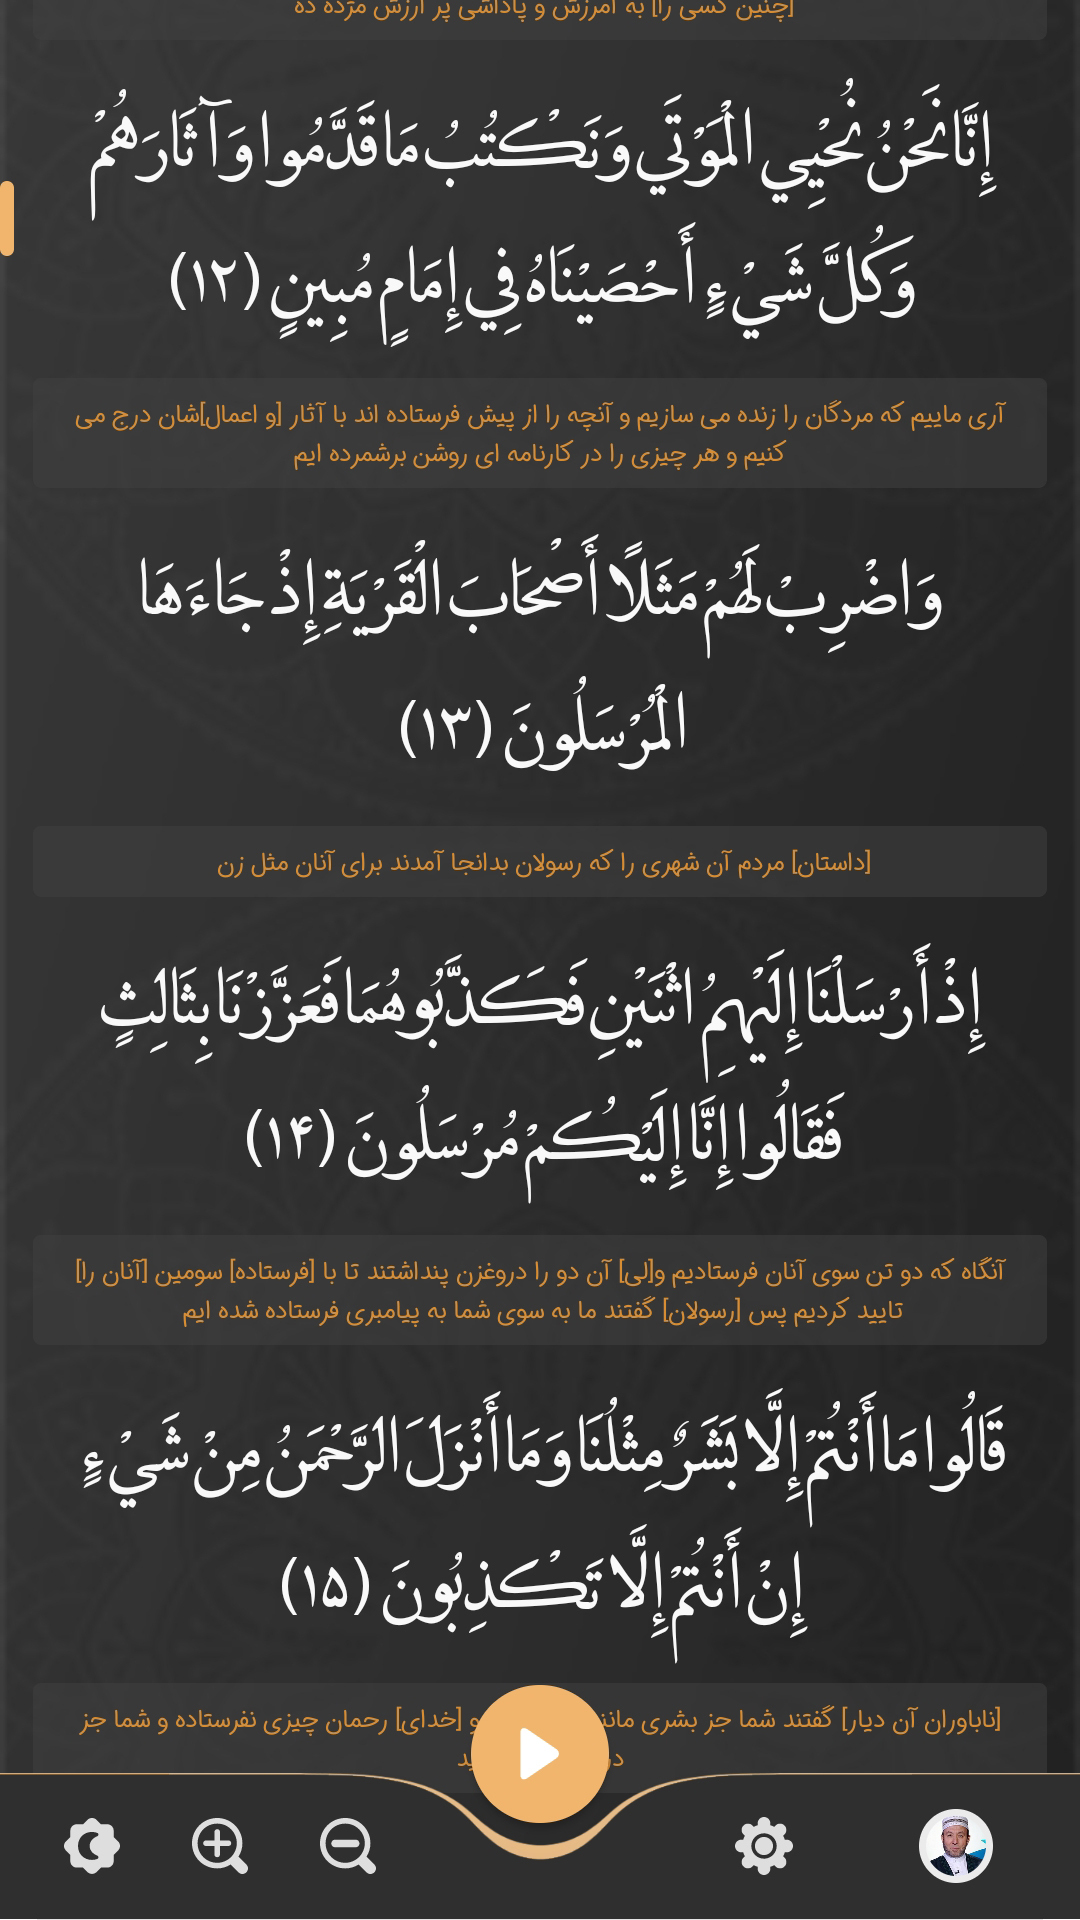 [چنین کسی را] به آمرزش و پاداشی پر ارزش مژده ده
إِنَّا نَحْنُ نُحْيِي الْمَوْتَى وَنَكْتُبُ مَا قَدَّمُوا وَآثَارَهُمْ
وَكُلَّ شَيْءٍ أَحْصَيْنَاهُ فِي إِمَامٍ مُبِينٍ (۱۲)
آری ماییم که مردگان را زنده می سازیم و آنچه را از پیش فرستاده اند با آثار [و اعمال]شان درج می
کنیم و هر چیزی را در کارنامه ای روشن برشمرده ایم
وَاضْرِبْ لَهُمْ مَثَلًا أَصْحَابَ الْقَرْيَةِ إِذْ جَاءَهَا
الْمُرْسَلُونَ (۱۳)
[داستان] مردم آن شهری را که رسولان بدانجا آمدند برای آنان مثل زن
إِذْ أَرْسَلْنَا إِلَيْهِمُ اثْنَيْنِ فَكَذَّبُوهُمَا فَعَزَّزْنَا بِثَالِثٍ
فَقَالُوا إِنَّا إِلَيْكُمْ مُرْسَلُونَ (۱۴)
آنگاه که دو تن سوی آنان فرستادیم و[لی] آن دو را دروغزن پنداشتند تا با [فرستاده] سومین [آنان را]
تایید کردیم پس [رسولان] گفتند ما به سوی شما به پیامبری فرستاده شده ایم
قَالُوا مَا أَنْتُمْ إِلَّا بَشَرٌ مِثْلُنَا وَمَا أَنْزَلَ الرَّحْمَنُ مِنْ شَيْءٍ
إِنْ أَنْتُمْ إِلَّا تَكْذِبُونَ (۱۵)
[ناباوران آن دیار] گفتند شما جز بشری و [خدای] رحمان چیزی نفرستاده و شما جز